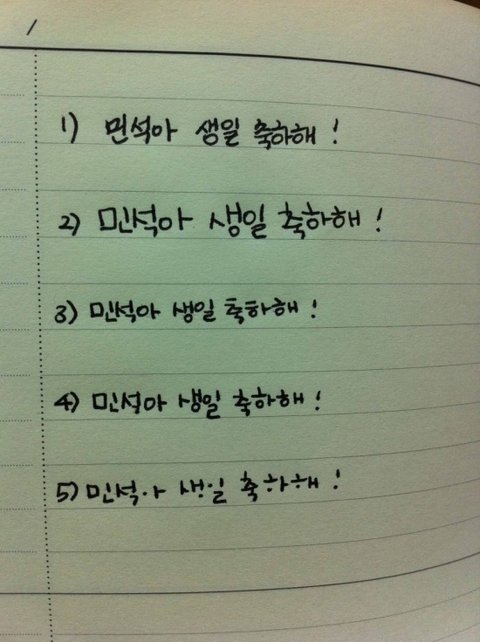 1) 민석아 생일 축하해!
2) 민석아 생일 축하해!
3) 민석아 생일 축하해!
4) 민석아 생일 축하해!
5) 민석아 생일 축하해!